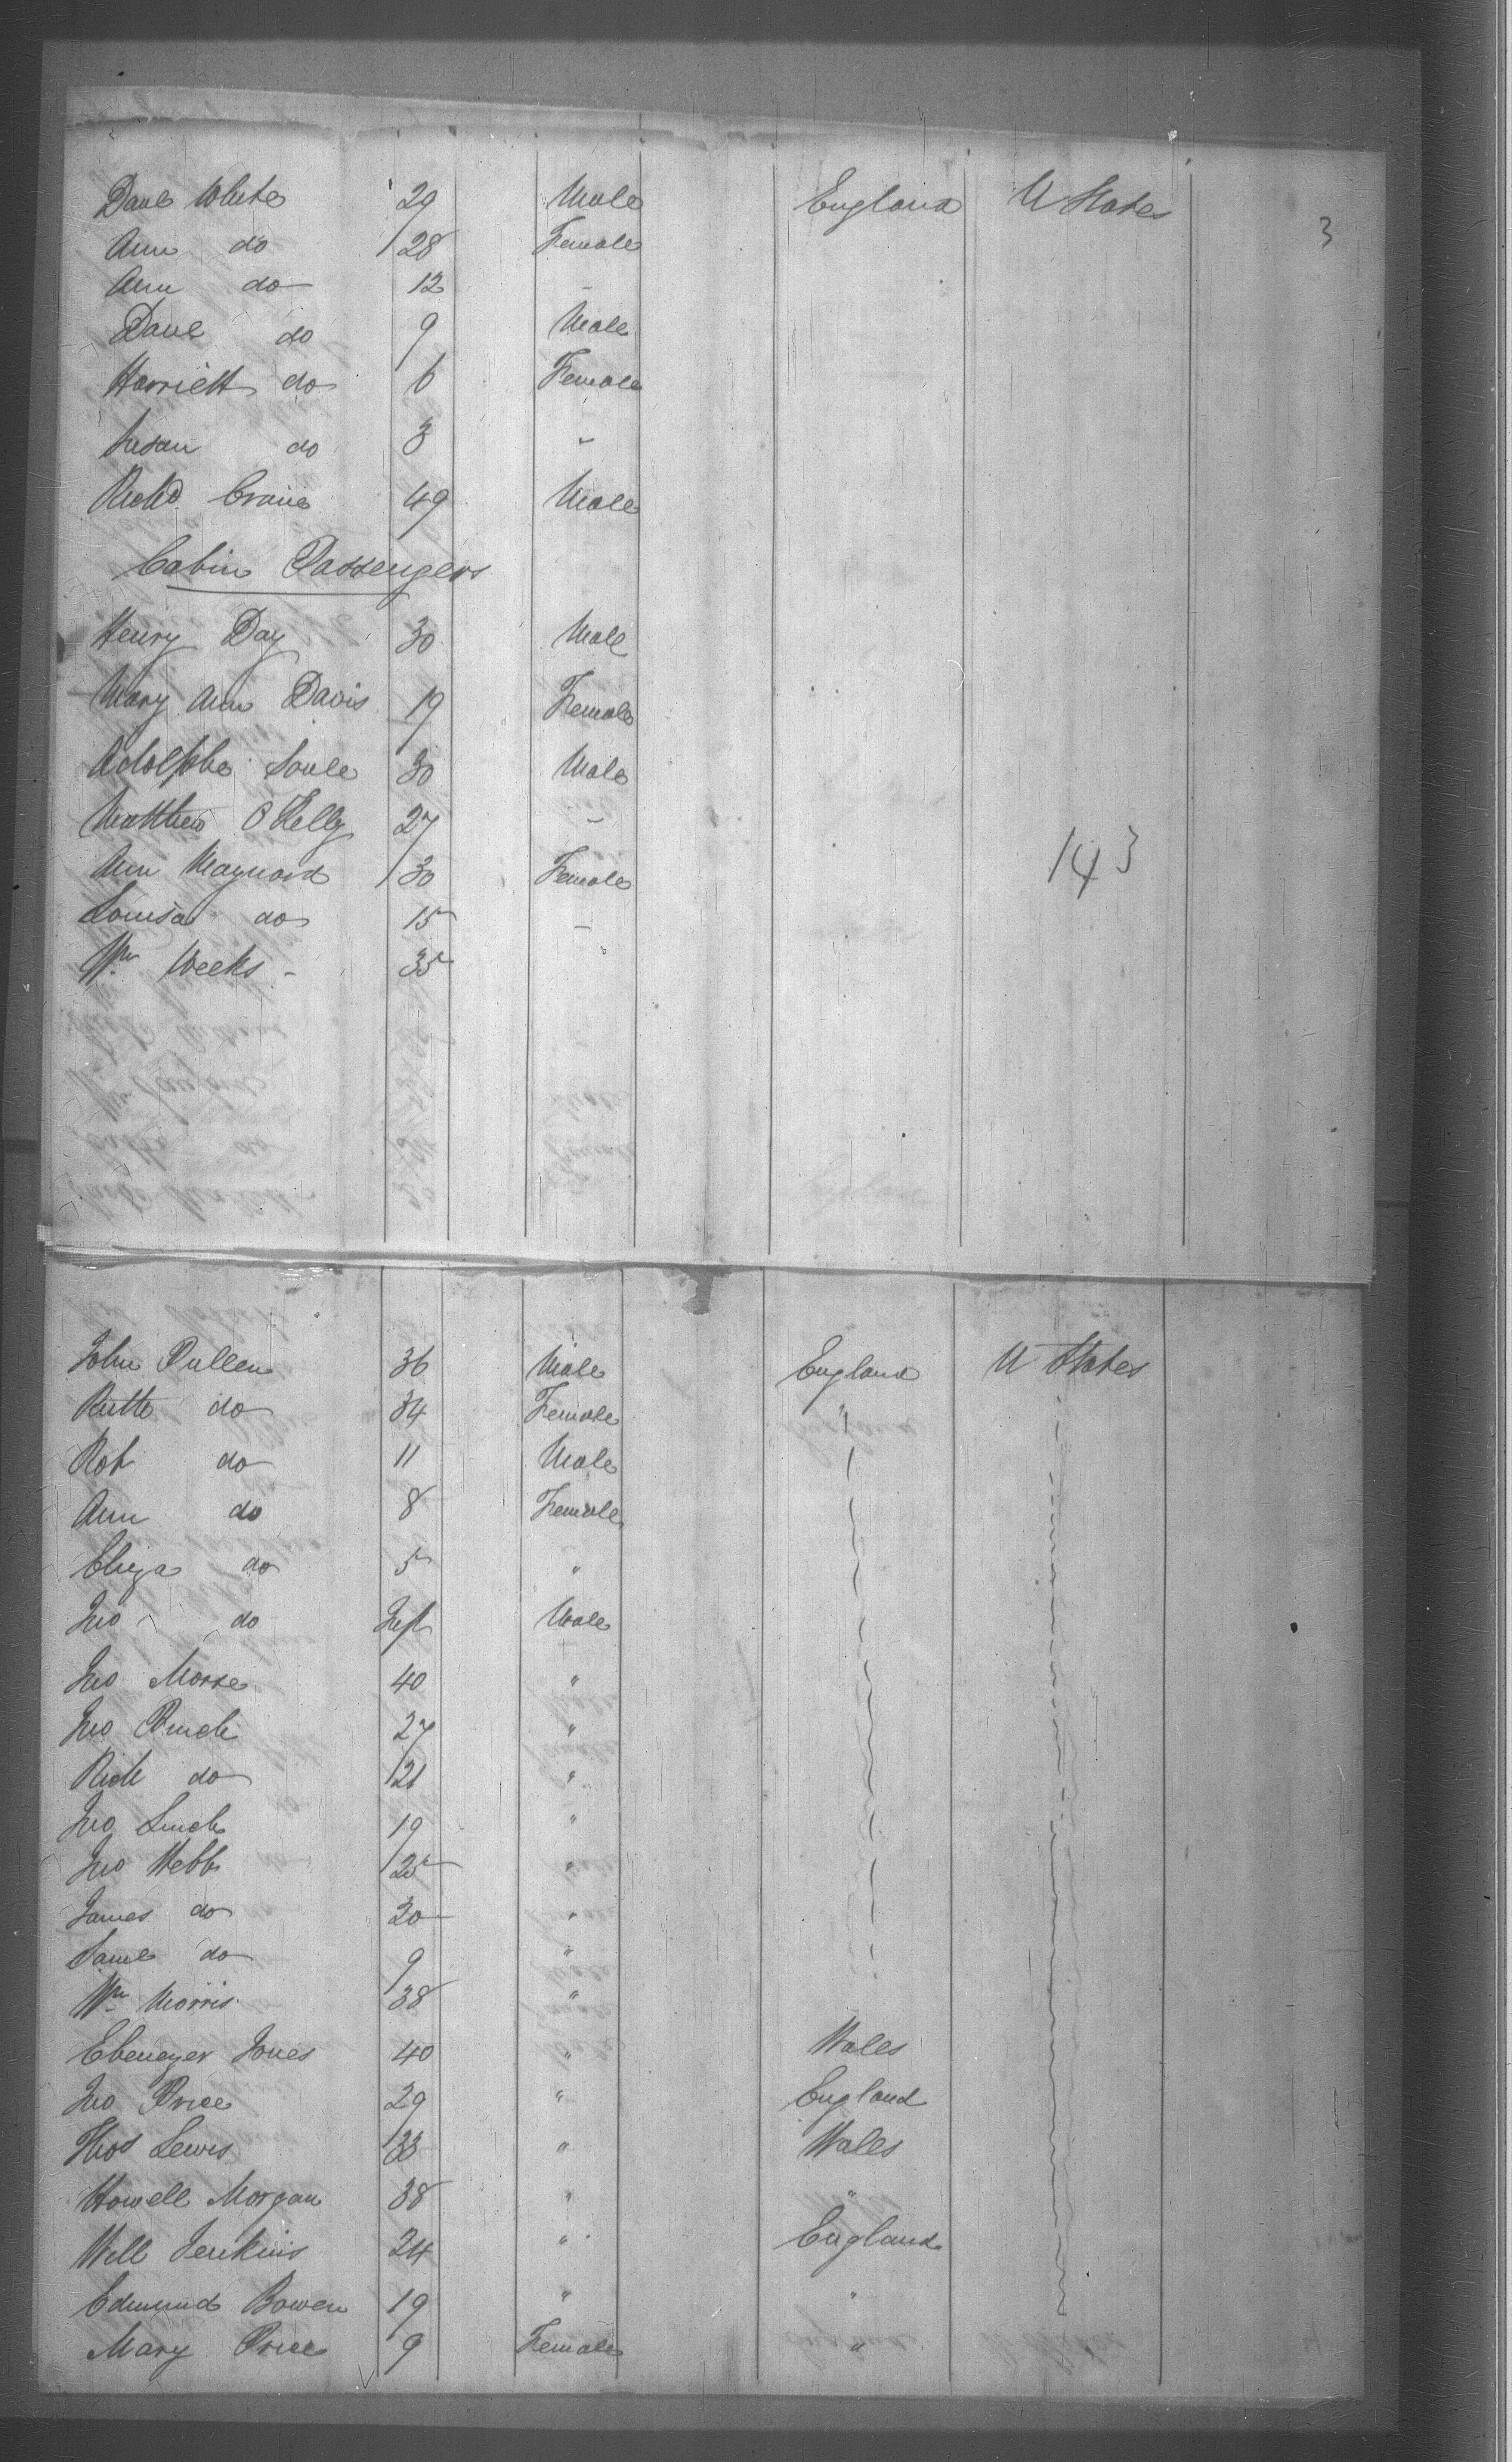 Danl White 29 Male England U States
3
Ann do 28 Female
Ann do 12 "
Danl do 9 Male
Harriett do 6 Female
Susan do 3 "
Richd Craine 49 Male
Cabin Passengers
Henry Day 30 Male
Mary Ann Davis 19 Female
Adolphe Soule 30 Male
Matthew O Kelly 27 "
143
Ann Maynard 30 Female
Louisa do 15 "
Wm Weeks 35 "
John Pullen 36 Male England U States
Ruth do 34 Female "
Rob do 11 Male
Ann do 8 Female
Eliza do 5 "
Jno do Inft Male
Jno Morse 40 "
Jno 27 "
Rich do 21 "
Jno 19 "
Jno Webb 25 "
James do 20 "
Saml do 9 "
Wm Morris 38 "
Ebenezer Jones 40 " Wales
Jno Price 29 " England
Thos Lewis 33 " Wales
Howell Morgan 38 " "
Will Jenkins 24 " England
Edmund Bowen 19 " "
Mary Price 9 Female "